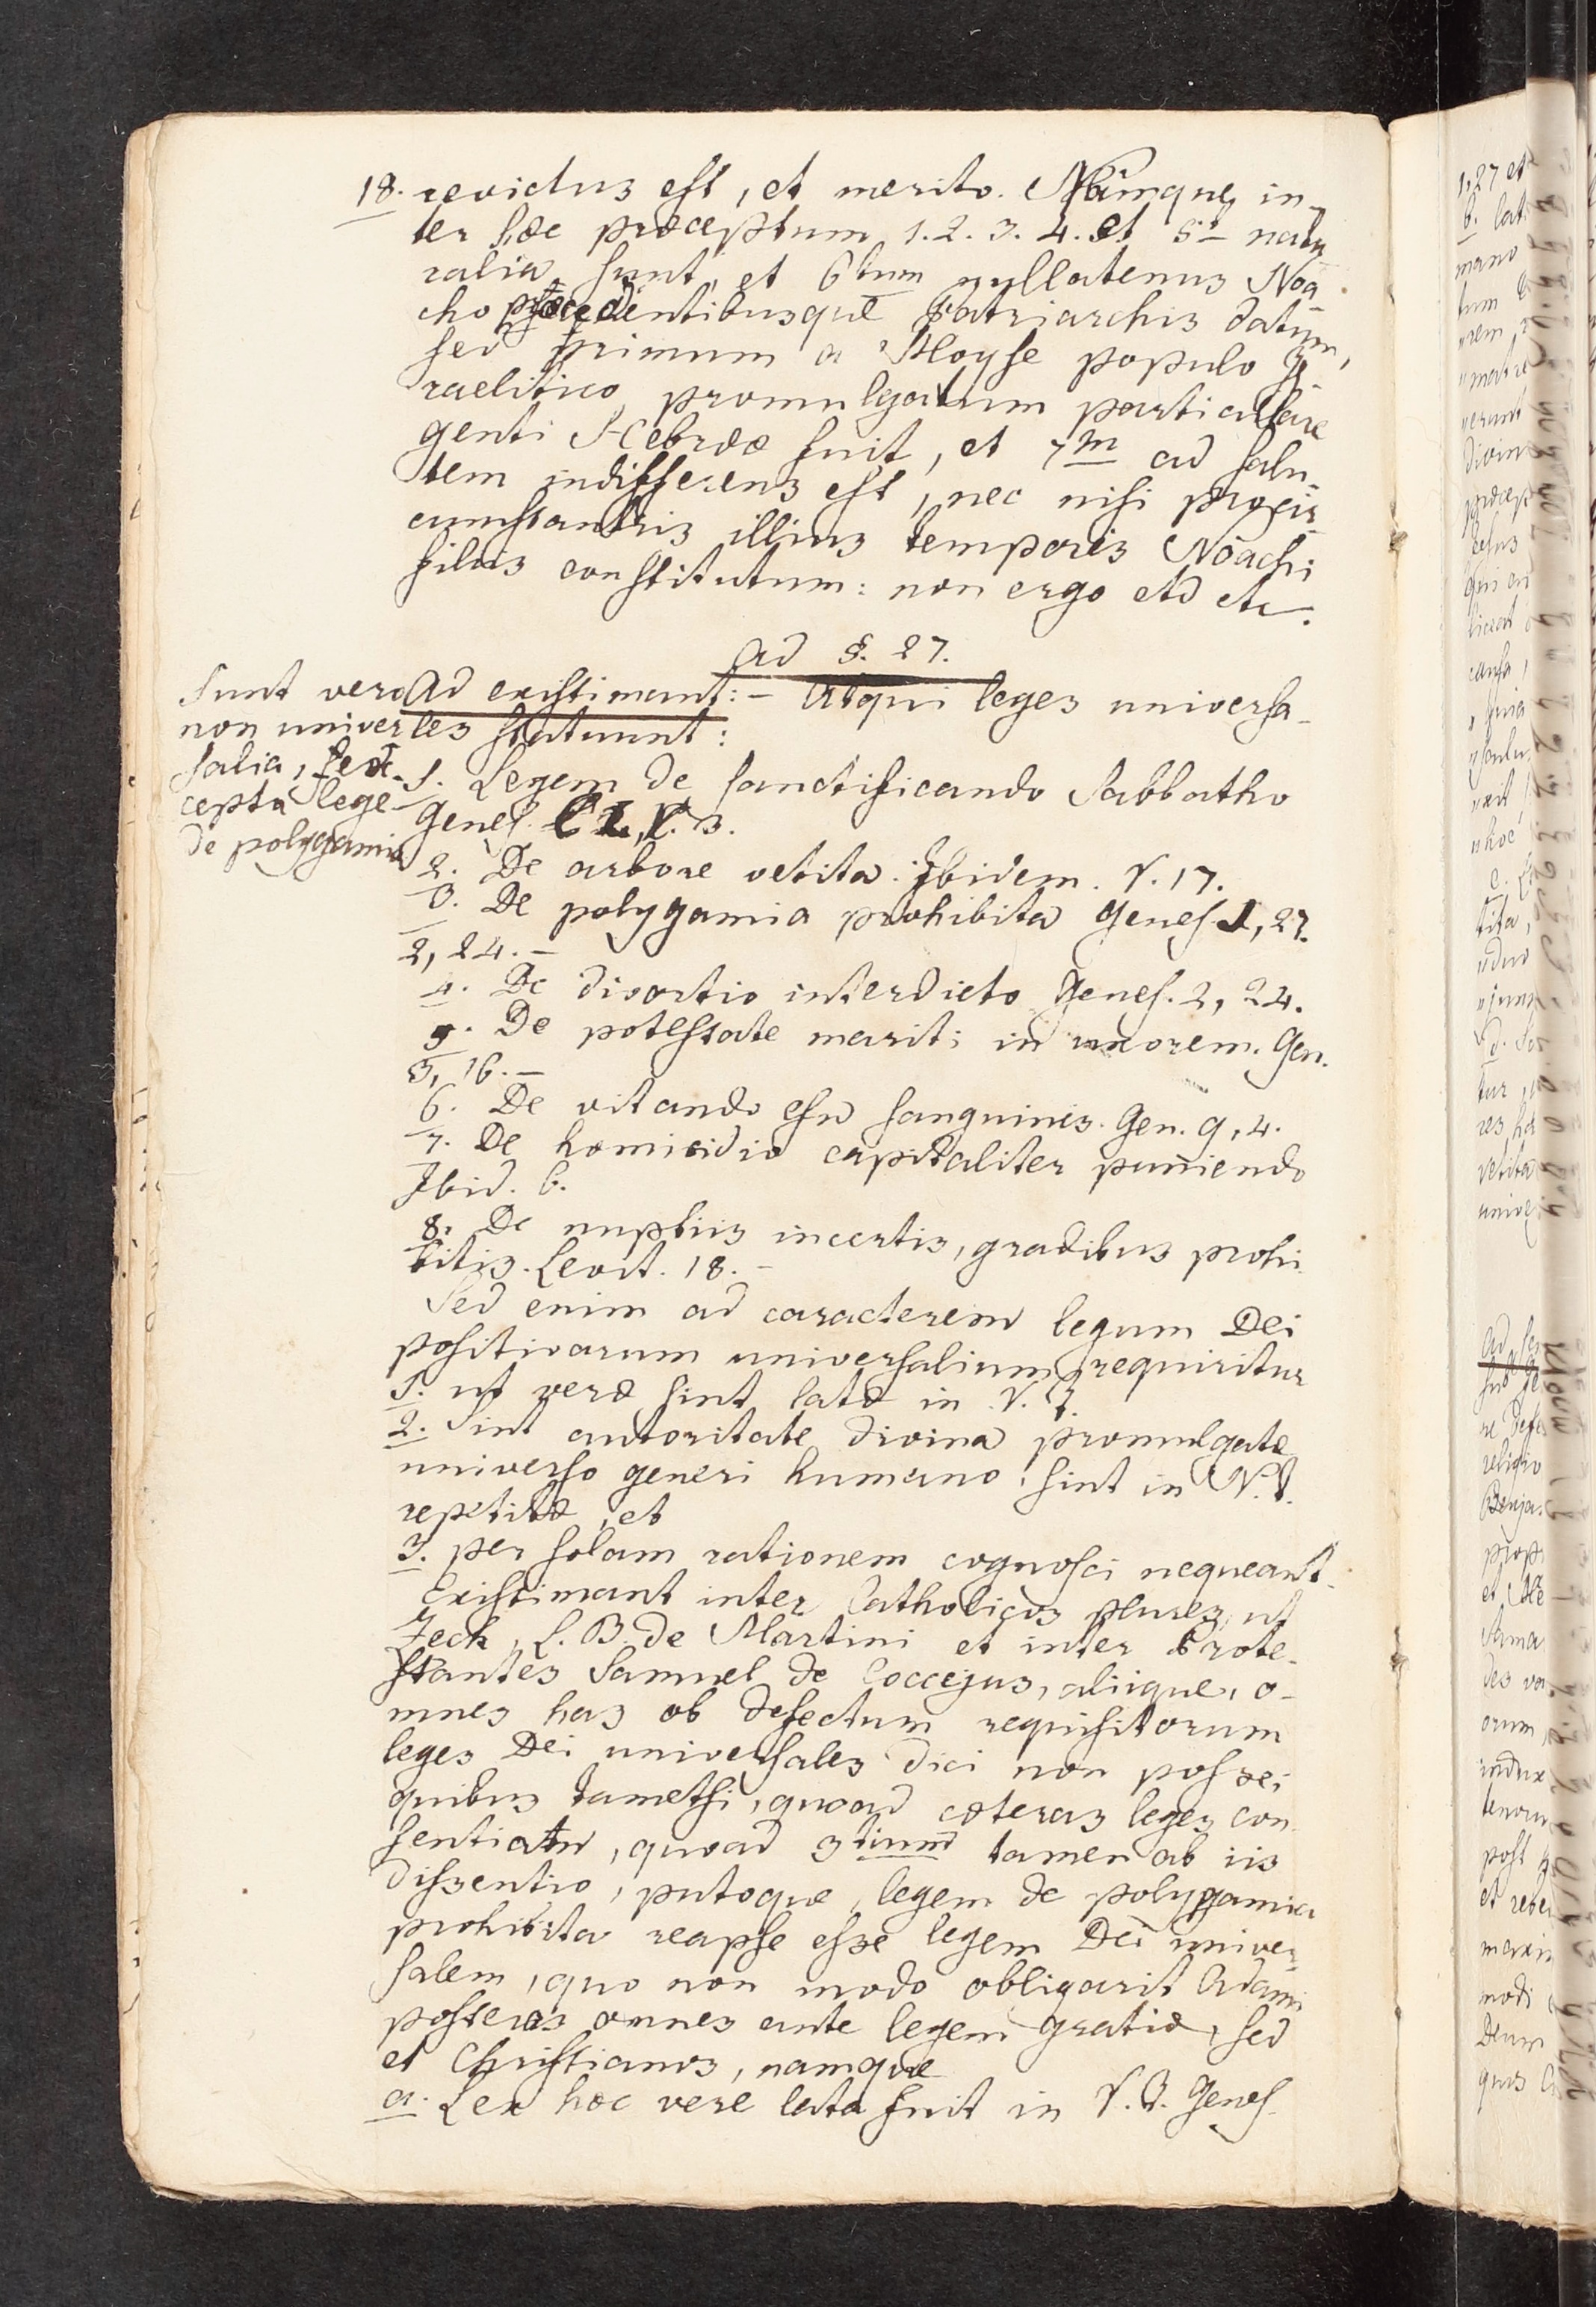 18. revictus est, et merito. Namque in-
ter hæc præceptum 1. 2. 3. 4. et 5t natu
ralia sunt, et 6tum nullatenus Noa
cho præcedentibusque Patriarchis datum,
sed primum a Moyse populo Is-
raelitico promulgatum particulare
genti Hebrææ fuit, et 7m ad salu-
tem indifferens est, nec nisi pro cir-
cumstantiis illius temporis Noachi
filiis constitutum: non ergo etc etc.
ad §. 27.
Sunt vero
non univer
salia, sed ex-
cepta lege
de polygamia
Ad existimant: - Atqui leges universa-
les statuunt:
1. Legem de sanctificando Sabbatho
Genes. C 2, V. 3.
2. De arbore vetita. Ibidem. V. 17.
3. De polygamia prohibita Genes. 1, 27.
2, 24. -
4. De divortio interdicto Genes. 2, 24.
5. De potestate mariti in uxorem. Gen.
3, 16. -
6. De vitando esu sanguinis. Gen. 9, 4.
7. De homicidio capitaliter puniendo
Ibid. 6.
8. De nuptiis incertis, gradibus prohi
bitis. Levit. 18. -
Sed enim ad caracterem legum Dei
positivarum universalium requiritur
1. ut veræ sint latæ in V. T.
2. Sint autoritate divina promulgatæ
universo generi humano, sint in N. T.
repetitæ, et
3. per solam rationem cognosci nequeant.
Existimant inter Catholicos plures, ut
Zech, L. B. de Martini et inter Prote-
stantes Samuel de Coccejus, aliique, o-
mnes has ob defectum requisitorum
leges Dei universales dici non posse;
quibus tametsi, quoad cæteras leges con
sentiam, quoad 3tium tamen ab iis
dissentio, putoque, legem de polygamia
prohibita reapse esse legem Dei univer
salem, quo non modo obligarit Adami
posteros omnes ante legem gratiæ, sed
et Christianos, namque
a. Lex hæc vere lata fuit in V. T. Genes.